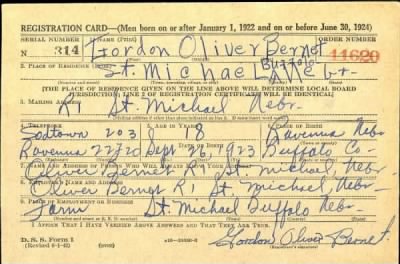 REGISTRATION CARD—(Men born on or after January 1, 1922 and on or before June 30, 1924)
SERIAL NUMBER 1. NAME (Print) ORDER NUMBER
N 314 Gordon Oliver Bernet 11620
2. PLACE OF RESIDENCE (Print) Buffalo
St. Michael, Nebr-
[THE PLACE OF RESIDENCE GIVEN ON THE LINE ABOVE WILL DETERMINE LOCAL BOARD
JURISDICTION; LINE 2 OF REGISTRATION CERTIFICATE WILL BE IDENTICAL]
3. MAILING ADDRESS
St. Michael Nebr.
4. TELEPHONE 5. AGE IN YEARS 6. PLACE OF BIRTH
Sodtown 203 18 Ravenna Nebr
Ravenna 22720 Sept 26, 1923 Buffalo Co-
7. NAME AND ADDRESS OF PERSON WHO WILL ALWAYS KNOW YOUR ADDRESS
Oliver Bernet R1 St. Michael, Nebr-
8. EMPLOYER'S NAME AND ADDRESS
Oliver Bernet R1 St. Michael, Nebr
9. PLACE OF EMPLOYMENT OR BUSINESS
Farm St. Michael Buffalo Nebr.
I AFFIRM THAT I HAVE VERIFIED ABOVE ANSWERS AND THAT THEY ARE TRUE.
D. S. S. Form 1
(Revised 6-9-42)
Gordon Oliver Bernet.